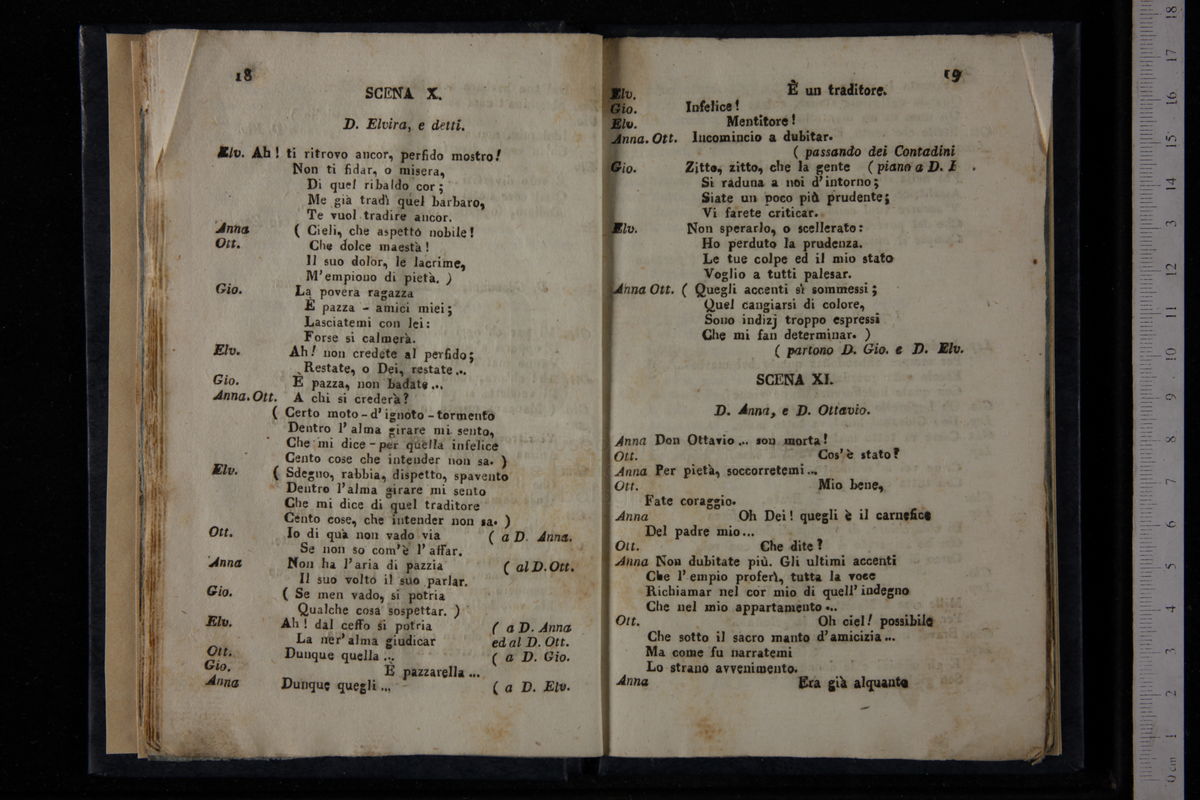 18
SCENA X.
D. Elvira, e detti.
Elv. Ah! ti ritrovo ancor, perfido mostro!
Non ti fidar, o misera,
Di quel ribaldo cor;
Me già tradì quel barbaro,
Te vuol tradire ancor.
Anna ( Cieli, che aspetto nobile!
Ott. Che dolce maestà!
Il suo dolor, le lacrime,
M'empiono di pietà. )
Gio. La povera ragazza
È pazza - amici miei;
Lasciatemi con lei:
Forse si calmerà.
Elv. Ah! non credete al perfido;
Restate, o Dei, restate...
Gio. È pazza, non badate...
Anna. Ott. A chi si crederà?
( Certo moto - d'ignoto - tormento
Dentro l'alma girare mi sento,
Che mi dice - per quella infelice
Cento cose che intender non sa. )
Elv. ( Sdegno, rabbia, dispetto, spavento
Dentro l'alma girare mi sento
Che mi dice di quel traditore
Cento cose, che intender non sa. )
Ott. Io di quà non vado via ( a D. Anna.
Se non so com'è l'affar.
Anna Non ha l'aria di pazzia ( al D. Ott.
Il suo volto il suo parlar.
Gio. ( Se men vado, si potria
Qualche cosa sospettar. )
Elv. Ah! dal ceffo si potria ( a D. Anna
La ner'alma giudicar ed al D. Ott.
Ott. Dunque quella... ( a D. Gio.
Gio. È pazzarella...
Anna Dunque quegli... ( a D. Elv.
19
Elv. È un traditore.
Gio. Infelice!
Elv. Mentitore!
Anna. Ott. Incomincio a dubitar.
( passando dei Contadini
Gio. Zitto, zitto, che la gente ( piano a D. E
Si raduna a noi d'intorno;
Siate un poco più prudente;
Vi farete criticar.
Elv. Non sperarlo, o scellerato:
Ho perduto la prudenza.
Le tue colpe ed il mio stato
Voglio a tutti palesar.
Anna Ott. ( Quegli accenti sì sommessi;
Quel cangiarsi di colore,
Sono indizj troppo espressi
Che mi fan determinar. )
( partono D. Gio. e D. Elv.
SCENA XI.
D. Anna, e D. Ottavio.
Anna Don Ottavio... son morta!
Ott. Cos'è stato?
Anna Per pietà, soccorretemi...
Ott. Mio bene,
Fate coraggio.
Anna Oh Dei! quegli è il carnefice
Del padre mio...
Ott. Che dite?
Anna Non dubitate più. Gli ultimi accenti
Che l'empio proferì, tutta la voce
Richiamar nel cor mio di quell'indegno
Che nel mio appartamento...
Ott. Oh ciel! possibile
Che sotto il sacro manto d'amicizia...
Ma come fu narratemi
Lo strano avvenimento.
Anna Era già alquanto